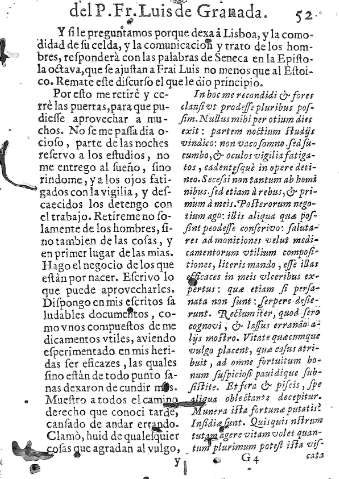 del P. Fr. Luis de Granada. 52
Y si le preguntamos porque dexa à Lisboa, y la como
didad de su celda, y la comunicacion y trato de los hom
bres, responderà con las palabras de Seneca en la Episto
la octava, que se ajustan a Frai Luis no menos que al Estoi
co. Remate este discurso el que le dio principio.
Por esto me retirè y ce-
rrè las puertas, para que pu
diesse aprovechar a mu-
chos. No se me passa dia o
cioso, parte de las noches
reservo a los estudios, no
me entrego al sueño, sino
rindome, y a los ojos fati-
gados con la vigilia, y des-
caecidos los detengo con
el trabajo. Retireme no so-
lamente de los hombres, si
no tambien de las cosas, y
en primer lugar de las mias.
Hago el negocio de los que
están por nacer. Escrivo lo
que puede aprovecharles.
Dispongo en mis escritos sa
ludables documentos, co-
mo vnos compuestos de me
dicamentos vtiles, aviendo
esperimentado en mis heri-
das ser eficazes, las quales
sino están de todo punto sa-
nas dexaron de cundir mas.
Muestro a todos el camino
derecho que conocì tarde,
cansado de andar errando.
Clamò, huid de qualesquier
cosas que agradan al vulgo,
y
In hoc me recondidi & fores
clausi vt prodesse pluribus pos-
sim. Nullus mihi per otium dies
exit: partem noctium studijs
vindico: non vaco somno sed su-
cumbo, & oculos vigilia fatiga-
tos, cadentesque in opere deti-
neo. Secessi non tantum ab homi
nibus. sed etiam à rebus, & pri-
mum à meis. Posterorum nego-
tium ago: illis aliqua qua pos-
sint prodesse conscrivo: saluta-
res admonitiones velut medi-
camentorum vtilium composi-
tiones, literis mando, esse illas
efficaces in meis vlceribus ex-
pertus: quæ etiam si persa-
nata non sunt: serpere desie-
runt. Rectum iter, quod sero
cognovi, & lassus errando a-
lijs mostro. Vitate quæcumque
vulgo placent, qua casus atri
buit, ad omne fortuitum bo-
num suspiciosi pavidique sub-
sistite. Et fera & piscis, spe
aliqua oblectante decipitur.
Munera ista fortuna putatis?
Insidiæ sunt. Quisquis nostrum
tutam agere vitam volet quan-
tum plurimum potest ista vis-
G4 cata